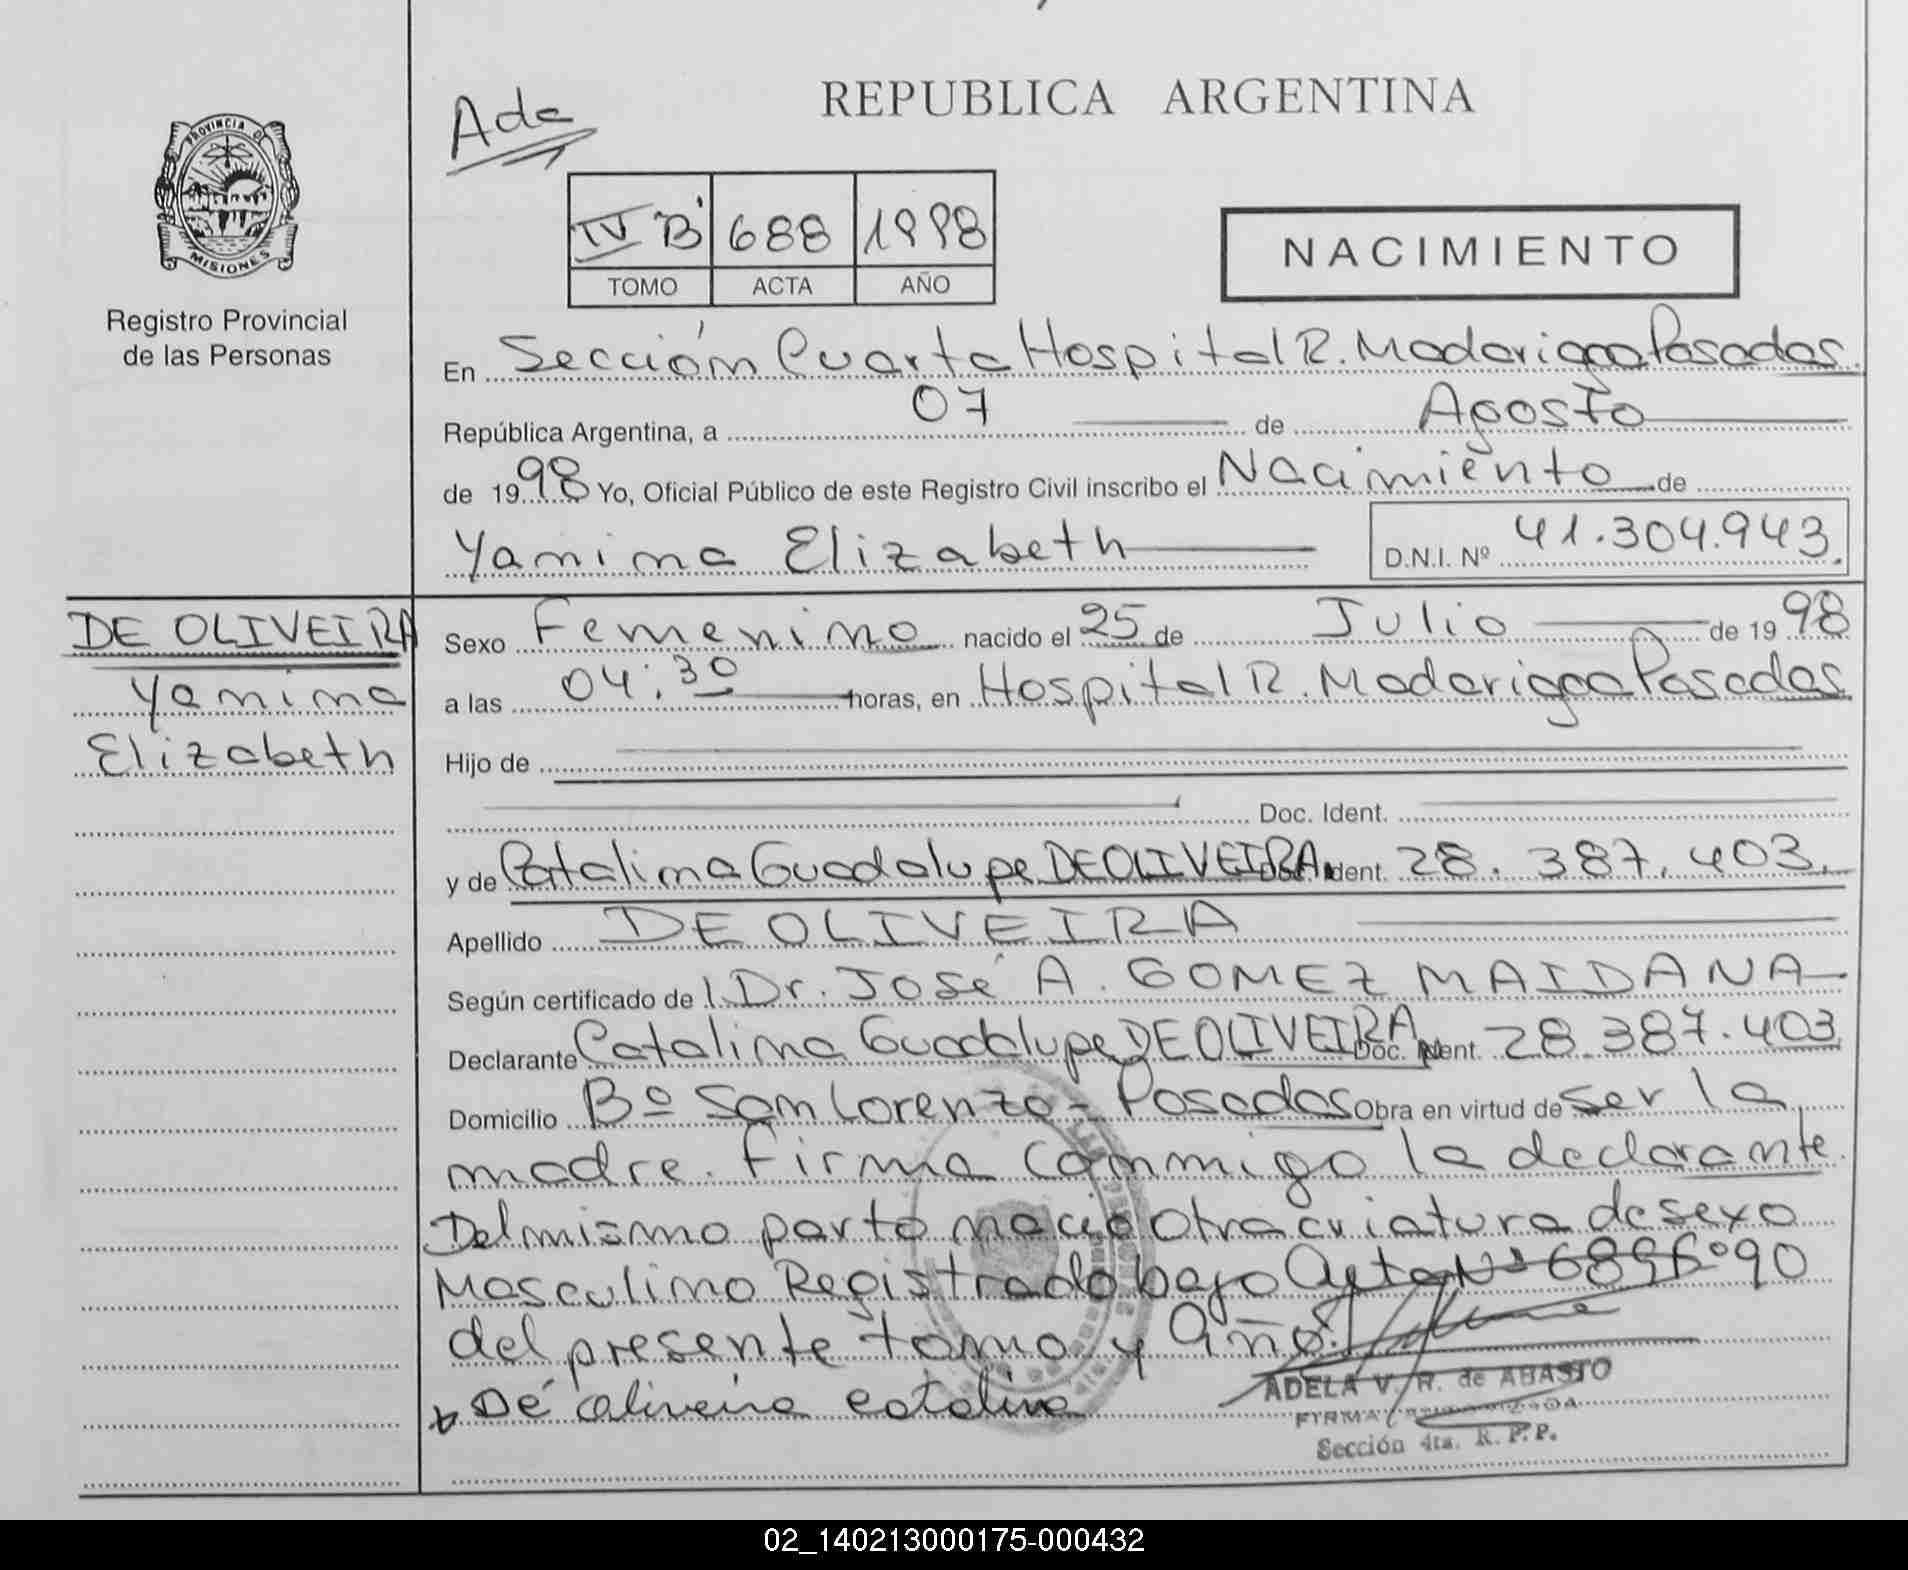 REPUBLICA ARGENTINA
Ada
PROVINCIA D
MISIONES
Registro Provincial
de las Personas
IV B 688 1998
TOMO ACTA AÑO
NACIMIENTO
En Sección Cuarta Hospital R. Madariaga Posadas.
República Argentina, a 07 de Agosto
de 1998 Yo, Oficial Público de este Registro Civil inscribo el Nacimiento de
Yanina Elizabeth D.N.I. Nº 41.304.943.
DE OLIVEIRA
Yanina
Elizabeth
Sexo Femenino nacido el 25 de Julio de 1998
a las 04:30 horas, en Hospital R. Madariaga Posadas
Hijo de
Doc. Ident.
y de Catalina Guadalupe DE OLIVEIRA Doc. Ident. 28.387.403.
Apellido DE OLIVEIRA
Según certificado de Dr. José A. GOMEZ MAIDANA
Declarante Catalina Guadalupe DE OLIVEIRA Doc. Ident. 28.387.403
Domicilio Bº San Lorenzo - Posadas Obra en virtud de ser la
madre. Firma conmigo la declarante.
Del mismo parto nació otra criatura de sexo
Masculino Registrado bajo Acta Nº 689 Fº 90
del presente tomo y año.
De oliveira catalina
ADELA V. R. de ABASTO
FIRMA AUTORIZADA
Sección 4ta. R. P. P.
02_140213000175-000432